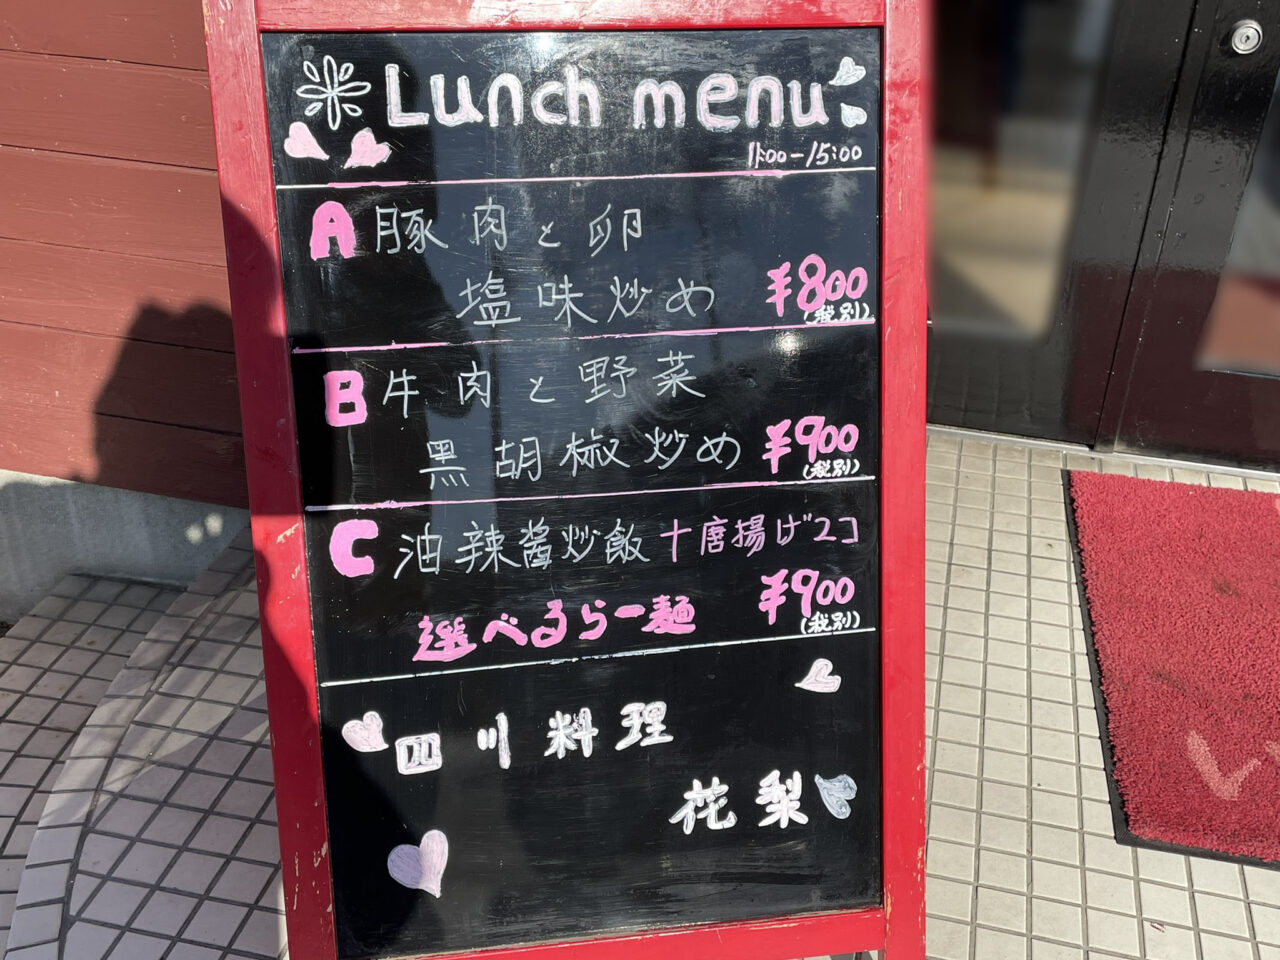 Lunch menu
11:00-15:00
A 豚肉と卵
塩味炒め ¥800
(税別)
B 牛肉と野菜
黒胡椒炒め ¥900
(税別)
C 油辣醤炒飯+唐揚げ2コ
¥900
選べるらー麺 (税別)
四川料理
花梨